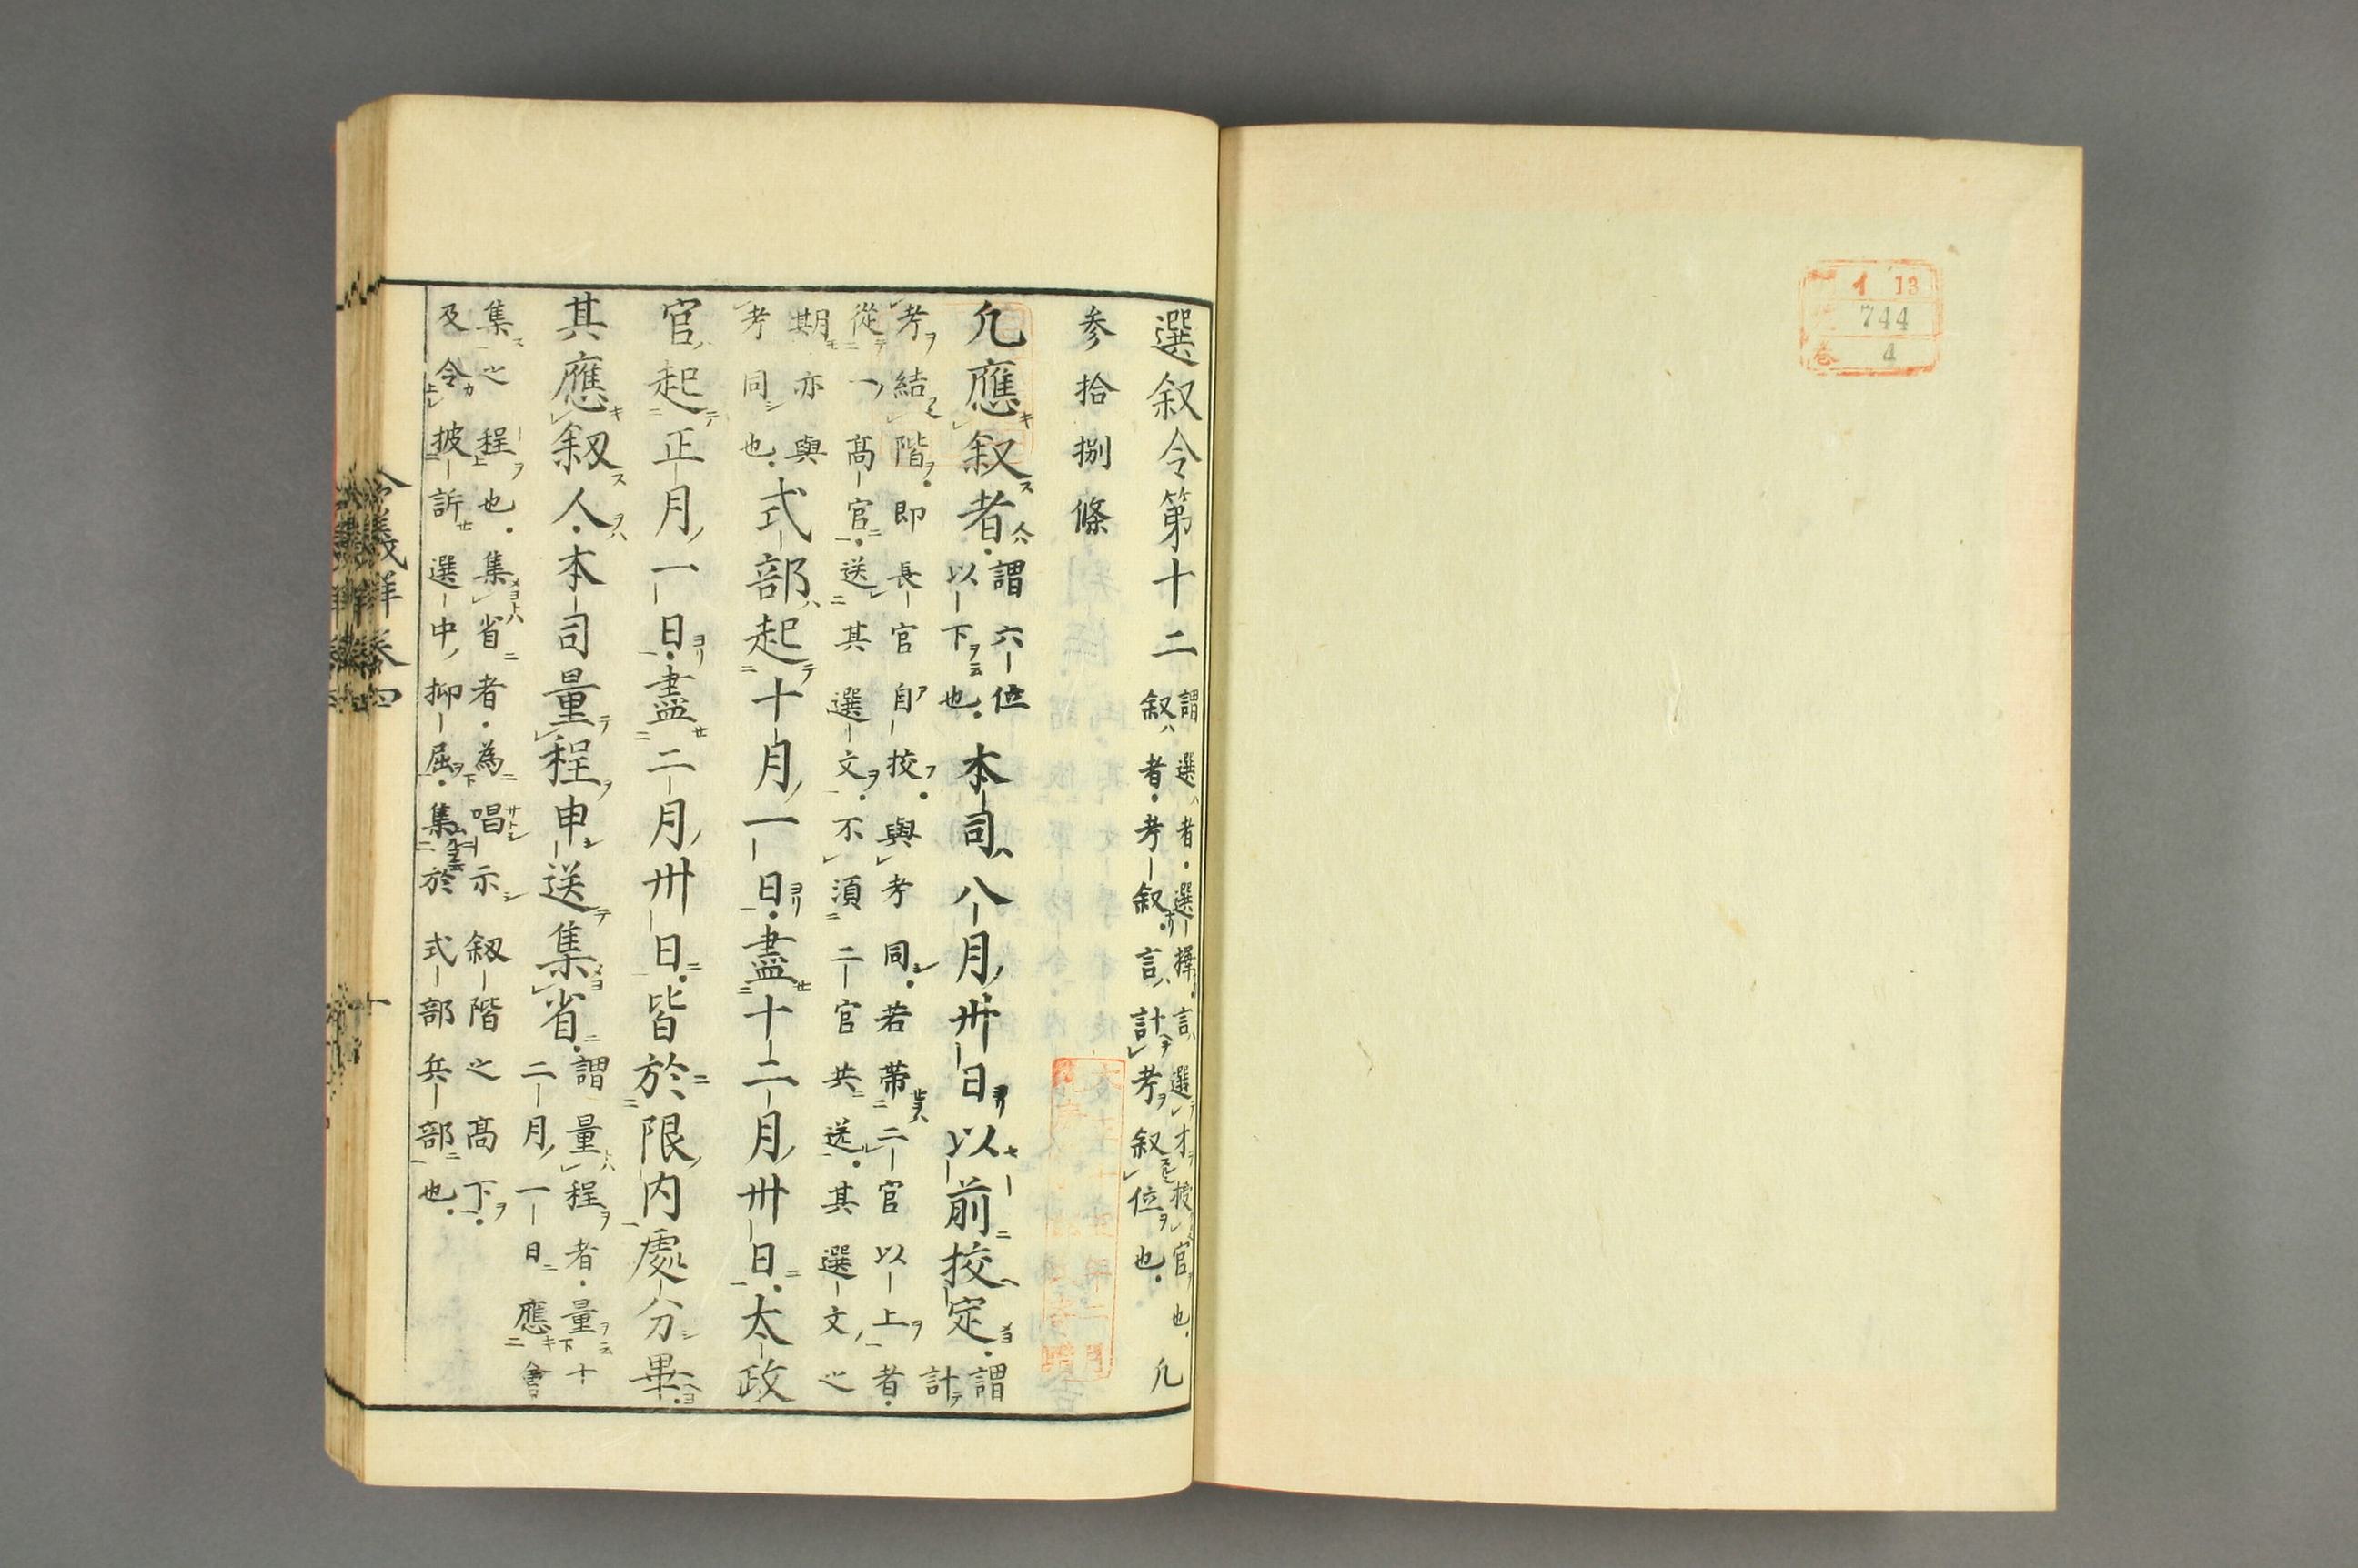 イ 13
744
4
選叙令第十二 謂選者選擇言選才授官也
叙者考叙言計考叙位也 凡
参拾捌條
凡應叙者 謂六位
以下也 本司八月卅日以前挍定 謂
計
考結階即長官自挍與考同若帶二官以上者
從一髙官送其選文不湏二官共送其選文之
期亦與
考同也 式部起十月一日盡十二月卅日太政
官起正月一日盡二月卅日皆於限内處分畢
其應叙人本司量程申送集省 謂量程者量十
二月一日應會
集之程也集省者為唱示叙階之髙下
及令披訴選中抑屈集於式部兵部也
令義解卷四
十